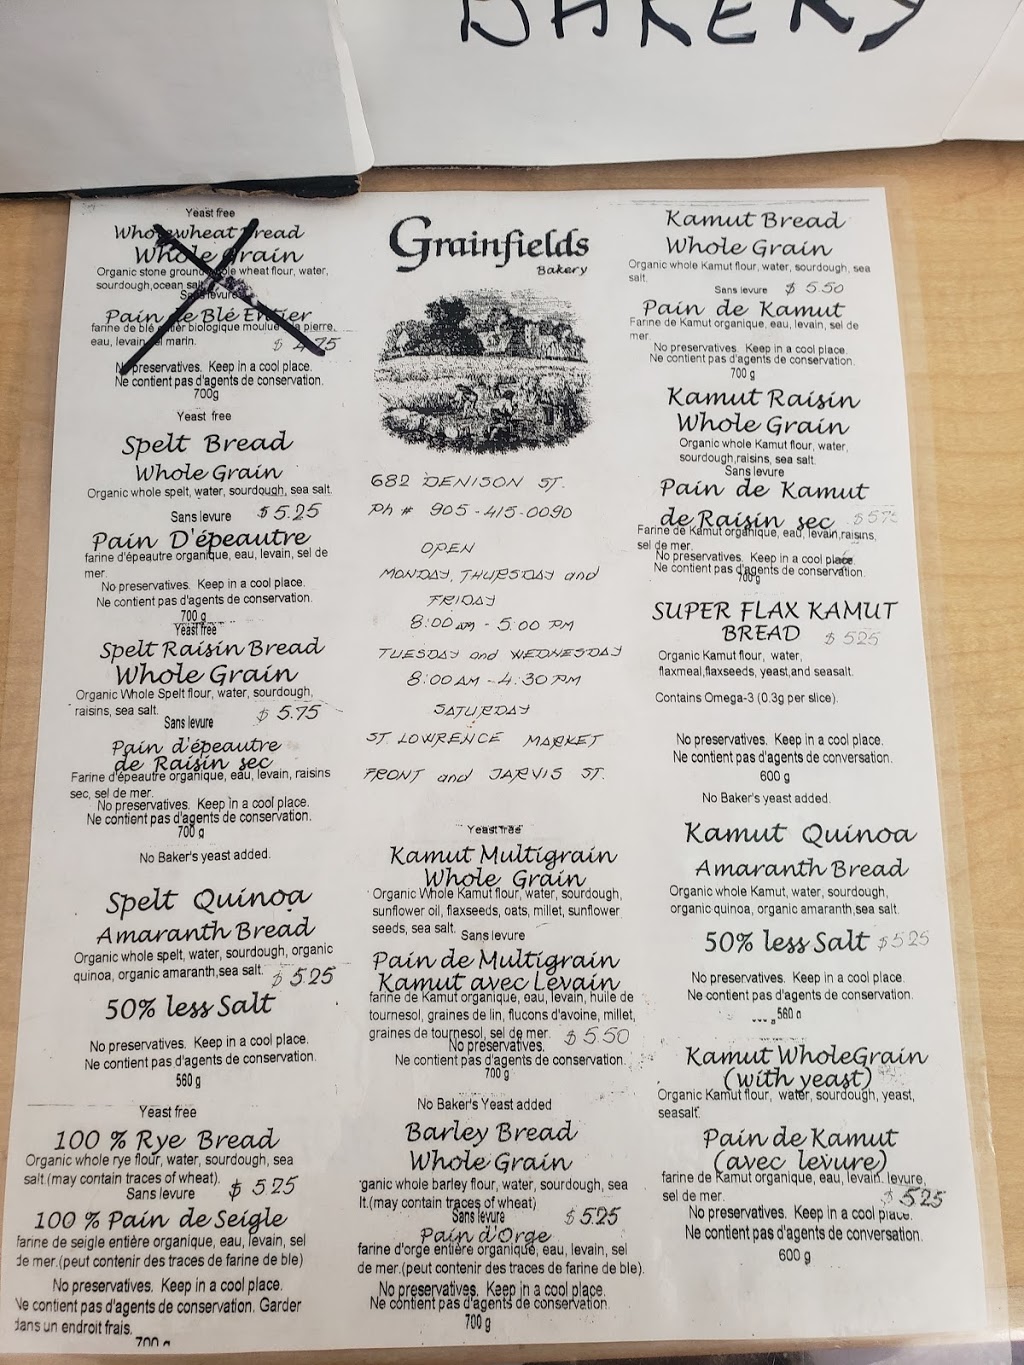 BAKERY
Yeast free
Wholewheat Bread
Whole Grain
Organic stone ground whole wheat flour, water,
sourdough,ocean salt
Sans levure
Pain de Blé Entier
farine de blé entier biologique moulue a pierre,
eau, levain, sel marin.
$ 4.75
No preservatives. Keep in a cool place.
Ne contient pas d'agents de conservation.
700g
Yeast free
Spelt Bread
Whole Grain
Organic whole spelt, water, sourdough, sea salt.
Sans levure $5.25
Pain D'épeautre
farine d'épeautre organique, eau, levain, sel de
mer.
No preservatives. Keep in a cool place.
Ne contient pas d'agents de conservation.
700 g
Yeast free
Spelt Raisin Bread
Whole Grain
Organic Whole Spelt flour, water, sourdough,
raisins, sea salt.
Sans levure $ 5.75
Pain d'épeautre
de Raisin sec
Farine d'épeautre organique, eau, levain, raisins
sec, sel de mer.
No preservatives. Keep in a cool place.
Ne contient pas d'agents de conservation.
700 g
No Baker's yeast added.
Spelt Quinoa
Amaranth Bread
Organic whole spelt, water, sourdough, organic
quinoa, organic amaranth,sea salt. $ 5.25
50% less Salt
No preservatives. Keep in a cool place.
Ne contient pas d'agents de conservation.
560 g
Yeast free
100 % Rye Bread
Organic whole rye flour, water, sourdough, sea
salt.(may contain traces of wheat).
Sans levure $ 5.25
100 % Pain de Seigle
farine de seigle entière organique, eau, levain, sel
de mer.(peut contenir des traces de farine de ble)
No preservatives. Keep in a cool place.
Ne contient pas d'agents de conservation. Garder
dans un endroit frais.
700 g
Grainfields
Bakery
682 DENISON ST.
Ph # 905-415-0090
OPEN
MONDAY, THURSDAY and
FRIDAY
8:00 am - 5:00 PM
TUESDAY and WEDNESDAY
8:00 AM - 4:30 PM
SATURDAY
ST. LOWRENCE MARKET
FRONT and JARVIS ST.
Yeast free
Kamut Multigrain
Whole Grain
Organic Whole Kamut flour, water, sourdough,
sunflower oil, flaxseeds, oats, millet, sunflower
seeds, sea salt.
Sans levure
Pain de Multigrain
Kamut avec Levain
farine de Kamut organique, eau, levain, huile de
tournesol, graines de lin, flucons d'avoine, millet,
graines de tournesol, sel de mer. $ 5.50
No preservatives.
Ne contient pas d'agents de conservation.
700 g
No Baker's Yeast added
Barley Bread
Whole Grain
ganic whole barley flour, water, sourdough, sea
lt.(may contain traces of wheat)
Sans levure $5.25
Pain d'Orge
farine d'orge entière organique, eau, levain, sel
de mer.(peut contenir des traces de farine de ble).
No preservatives. Keep in a cool place.
Ne contient pas d'agents de conservation.
700 g
Kamut Bread
Whole Grain
Organic whole Kamut flour, water, sourdough, sea
salt.
Sans levure $ 5.50
Pain de Kamut
Farine de Kamut organique, eau, levain, sel de
mer.
No preservatives. Keep in a cool place.
Ne contient pas d'agents de conservation.
700 g
Kamut Raisin
Whole Grain
Organic whole Kamut flour, water,
sourdough,raisins, sea salt.
Sans levure
Pain de Kamut
de Raisin sec $575
Farine de Kamut organique, eau, levain,raisins,
sel de mer.
No preservatives. Keep in a cool place.
Ne contient pas d'agents de conservation.
700 g
SUPER FLAX KAMUT
BREAD $ 5.25
Organic Kamut flour, water,
flaxmeal,flaxseeds, yeast,and seasalt.
Contains Omega-3 (0.3g per slice).
No preservatives. Keep in a cool place.
Ne contient pas d'agents de conversation.
600 g
No Baker's yeast added.
Kamut Quinoa
Amaranth Bread
Organic whole Kamut, water, sourdough,
organic quinoa, organic amaranth,sea salt.
50% less Salt $525
No preservatives. Keep in a cool place.
Ne contient pas d'agents de conservation.
560 g
Kamut WholeGrain
(with yeast)
Organic Kamut flour, water, sourdough, yeast,
seasalt.
Pain de Kamut
(avec levure)
farine de Kamut organique, eau, levain. levure,
sel de mer. $ 5.25
No preservatives. Keep in a cool place.
Ne contient pas d'agents de conversation.
600 g